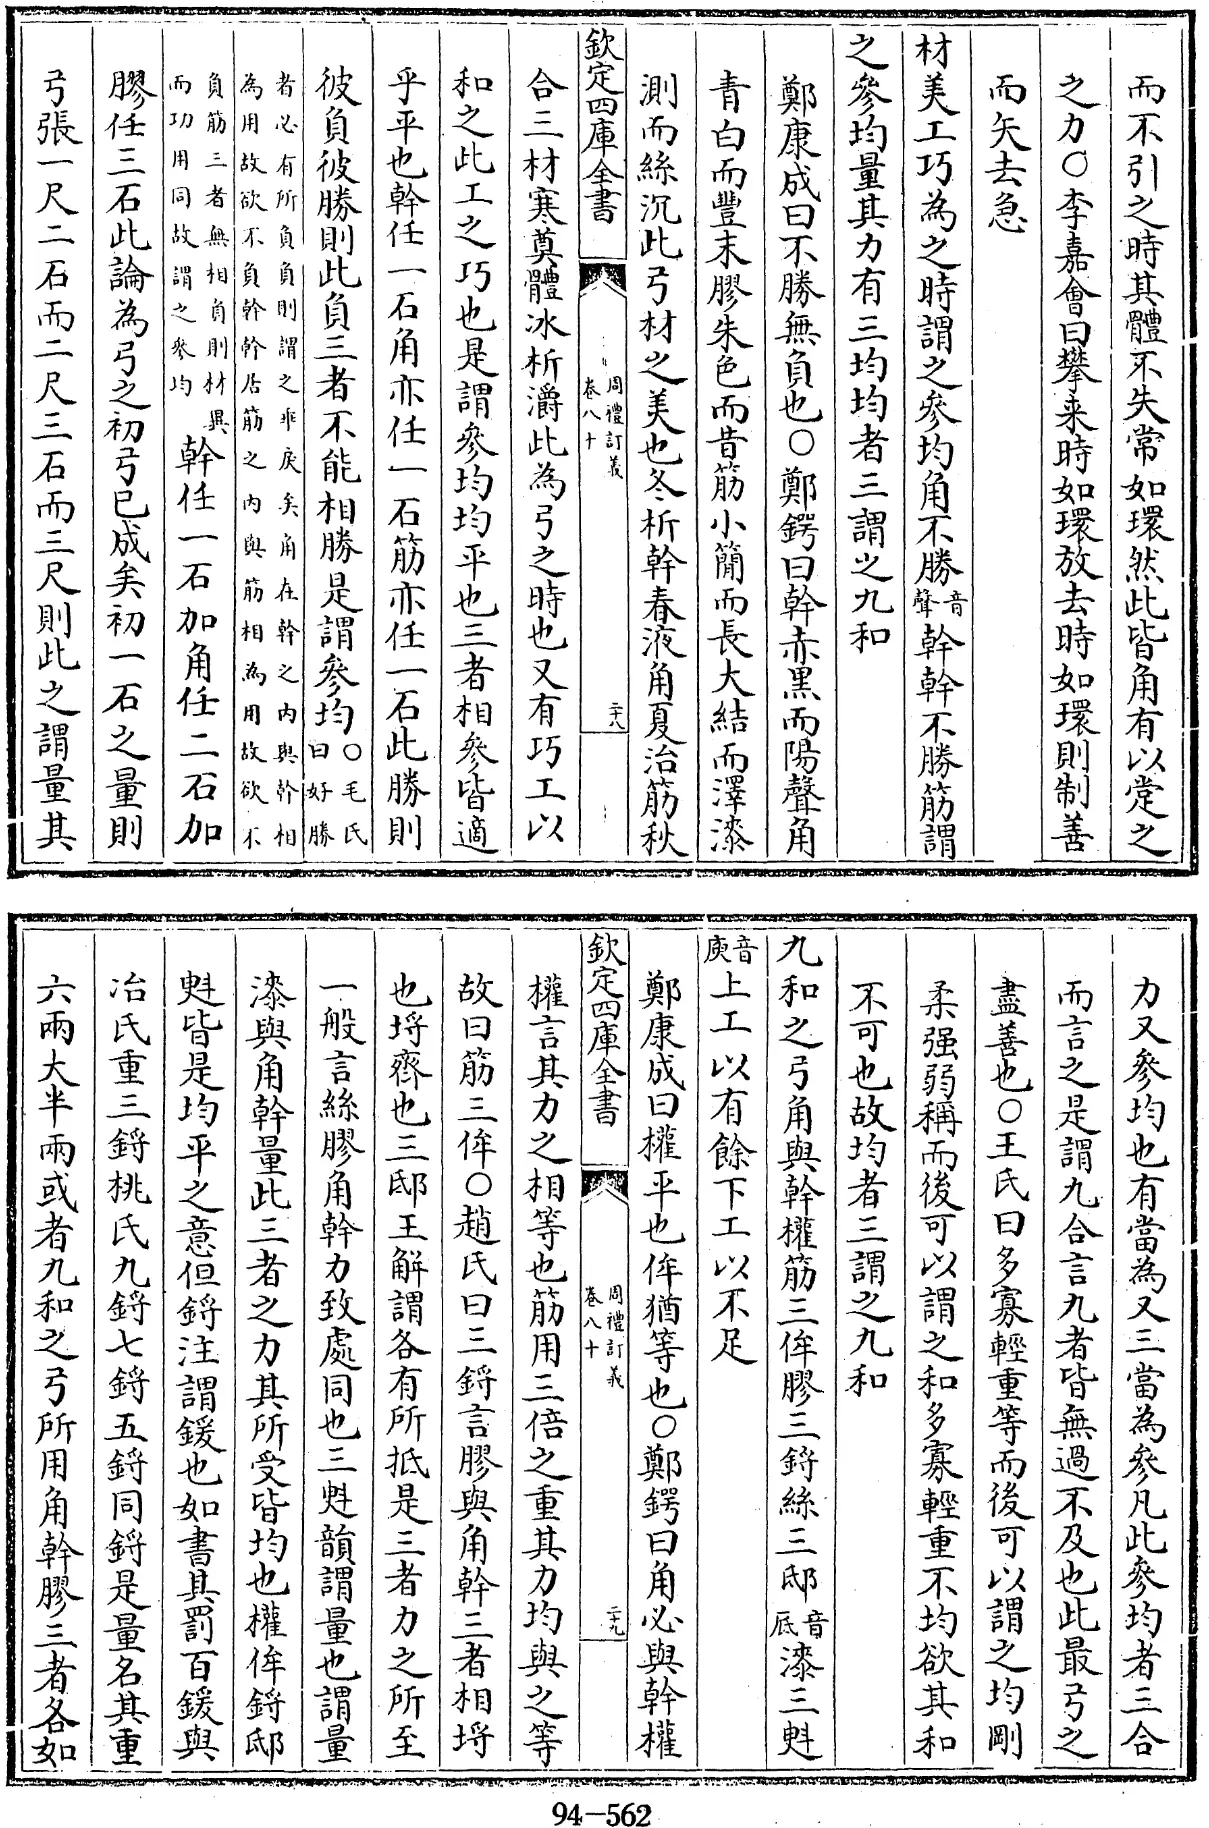 而不引之時其體不失常如環然此皆角有以定之
之力〇李嘉會曰攀来時如環放去時如環則制善
而矢去急
材美工巧為之時謂之參均角不勝音聲幹幹不勝筋謂
之參均量其力有三均均者三謂之九和
鄭康成曰不勝無負也〇鄭鍔曰幹赤黑而陽聲角
青白而豐末膠朱色而昔筋小簡而長大結而澤漆
測而絲沉此弓材之美也冬析幹春液角夏治筋秋
欽定四庫全書
周禮訂義
卷八十
二十八
合三材寒奠體冰析灂此為弓之時也又有巧工以
和之此工之巧也是謂參均均平也三者相參皆適
乎平也幹任一石角亦任一石筋亦任一石此勝則
彼負彼勝則此負三者不能相勝是謂參均〇毛氏曰好勝
者必有所負負則謂之乖戾矣角在幹之内與幹相
為用故欲不負幹幹居筋之内與筋相為用故欲不
負筋三者無相負則材異
而功用同故謂之參均
幹任一石加角任二石加
膠任三石此論為弓之初弓已成矣初一石之量則
弓張一尺二石而二尺三石而三尺則此之謂量其
力又參均也有當為又三當為參凡此參均者三合
而言之是謂九合言九者皆無過不及也此最弓之
盡善也〇王氏曰多寡輕重等而後可以謂之均剛
柔强弱稱而後可以謂之和多寡輕重不均欲其和
不可也故均者三謂之九和
九和之弓角與幹權筋三侔膠三鋝絲三邸音底漆三㪷
音庾上工以有餘下工以不足
鄭康成曰權平也侔猶等也〇鄭鍔曰角必與幹權
欽定四庫全書
周禮訂義
卷八十
二十九
權言其力之相等也筋用三倍之重其力均與之等
故曰筋三侔〇趙氏曰三鋝言膠與角幹三者相埒
也埒齊也三邸王解謂各有所抵是三者力之所至
一般言絲膠角幹力致處同也三㪷韻謂量也謂量
漆與角幹量此三者之力其所受皆均也權侔鋝邸
㪷皆是均平之意但鋝注謂鍰也如書其罰百鍰與
冶氏重三鋝桃氏九鋝七鋝五鋝同鋝是量名其重
六兩大半兩或者九和之弓所用角幹膠三者各如
94-562